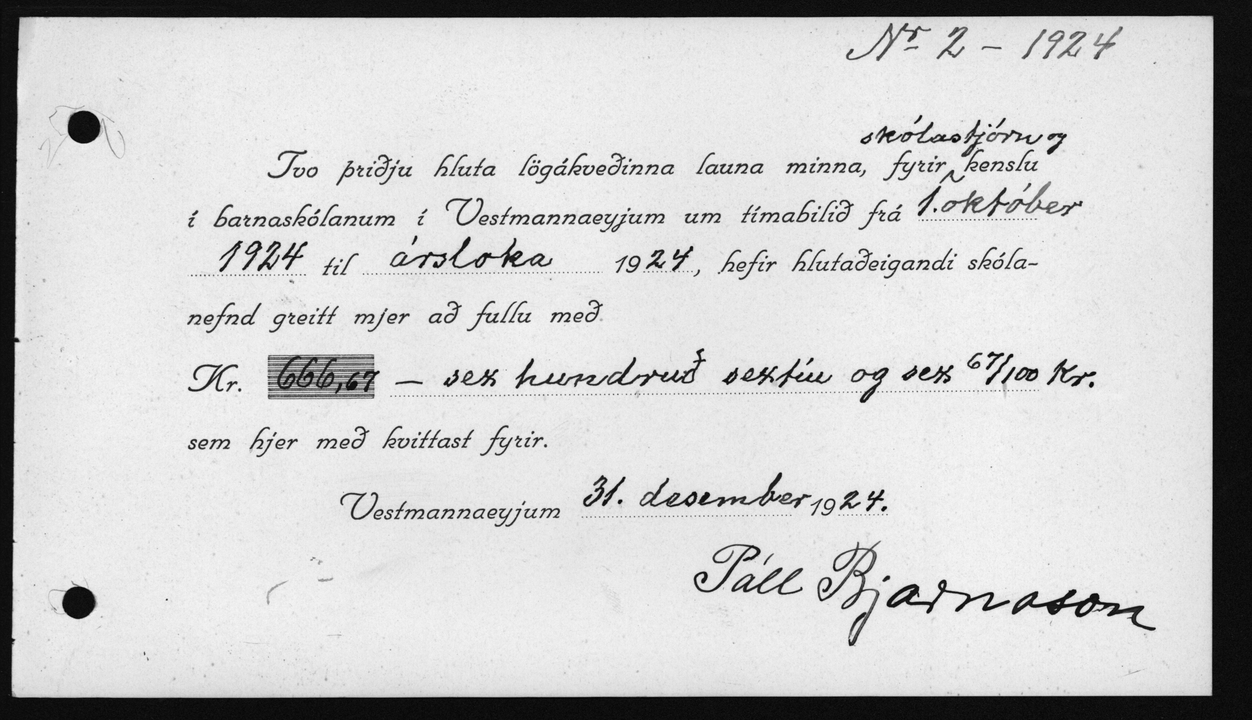 Nr. 2 - 1924
skólastjórn og
Tvo þriðju hluta lögákveðinna launa minna, fyrir kenslu
í barnaskólanum í Vestmannaeyjum um tímabilið frá 1. október
1924 til ársloka 1924, hefir hlutaðeigandi skóla-
nefnd greitt mjer að fullu með
Kr. 666,67 — sex hundruð sextíu og sex 67/100 Kr.
sem hjer með kvittast fyrir.
Vestmannaeyjum 31. desember 1924.
Páll Bjarnason